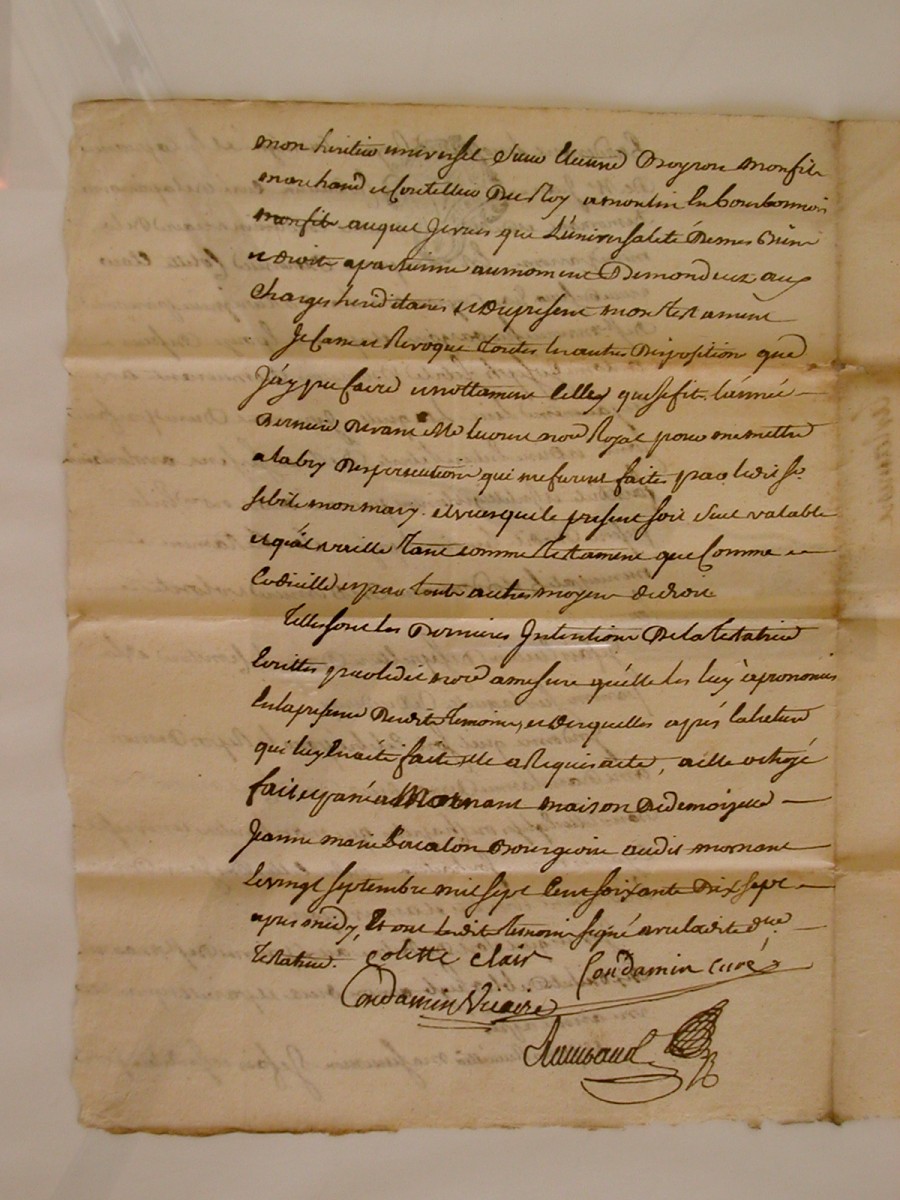 mon heritier universel Sieur Etienne Noyron mon fils
marchand et Coutellier Du Roy a moulin En bourbonnois
mon fils auquel Je veux que L'universalité De mes Biens
et droits apartienne au moment De mon deux aux
Charges hereditaires et Du present mon testament
Je Casse et Revoque toutes les autres Disposition que
J'ay pu faire et nottament Celles que Je fit L'année
Derniere Devant Me nore Royal pour me mettre
a labry Des persecutions qui me furent faites par ledit Sr
mon mary. et veux que le present soit Seul valable
et qu'il vaille tant comme testament que Comme
Codicille et par toute autres moyens de droit
Telles sont les Dernieres Intentions De la testatrice
Ecrittes par ledit nore a mesure qu'elle les luy a prononcés
En la presence Desdits temoins, et Desquelles après la lecture
qui luy En a été faite elle a Requis acte, a elle octroyé
fait et passé a Mornant maison de demoizelle
Jeanne marie Bourgeoise audit mornant
Le vingt septembre mil sept Cent soixante Dix sept
apres midy, Et ont lesdits temoins signé avec ladite dlle
testatrice. colette clair Condamin curé
Condamin Vicaire